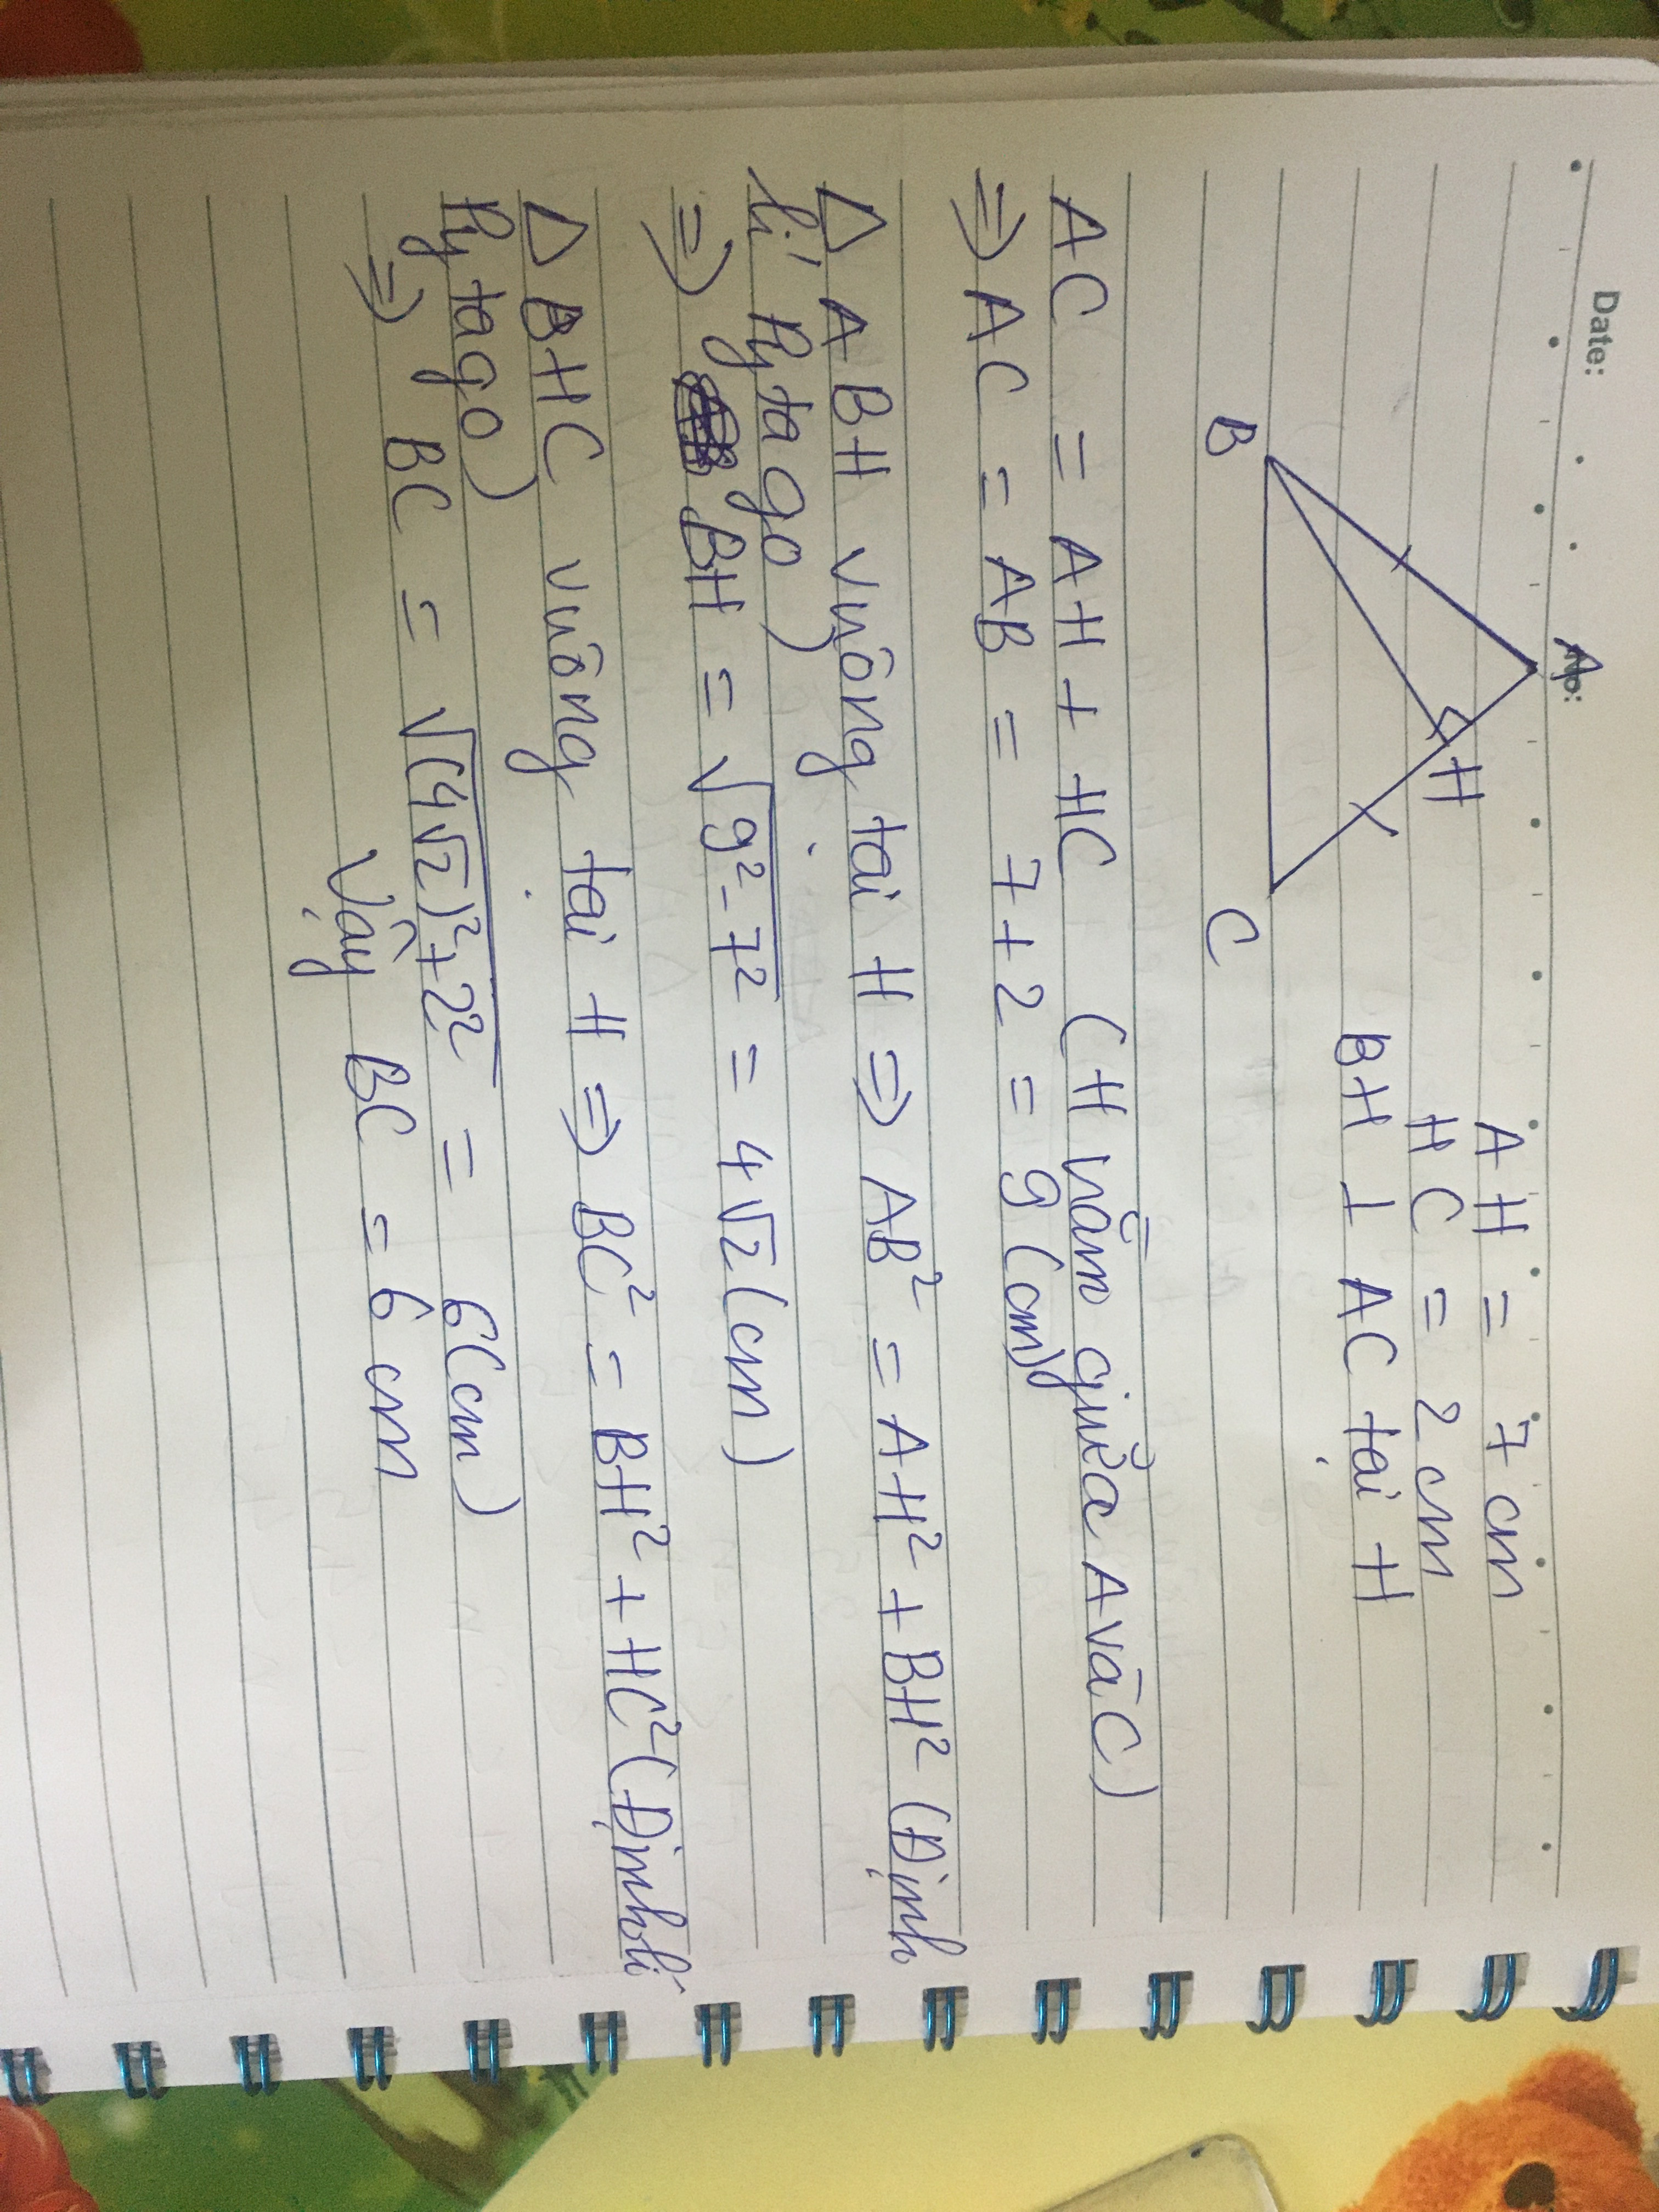 Date:
No:
A
H
B
C
AH = 7 cm
HC = 2 cm
BH ⊥ AC tại H
AC = AH + HC (H nằm giữa A và C)
⇒ AC = AB = 7 + 2 = 9 (cm)
Δ ABH vuông tại H ⇒ AB² = AH² + BH² (Định
lí Pytago)
⇒ BH = √9² - 7² = 4√2 (cm)
Δ BHC vuông tại H ⇒ BC² = BH² + HC² (Định lí
Pytago)
⇒ BC = √(4√2)² + 2² = 6 (cm)
Vậy BC = 6 cm